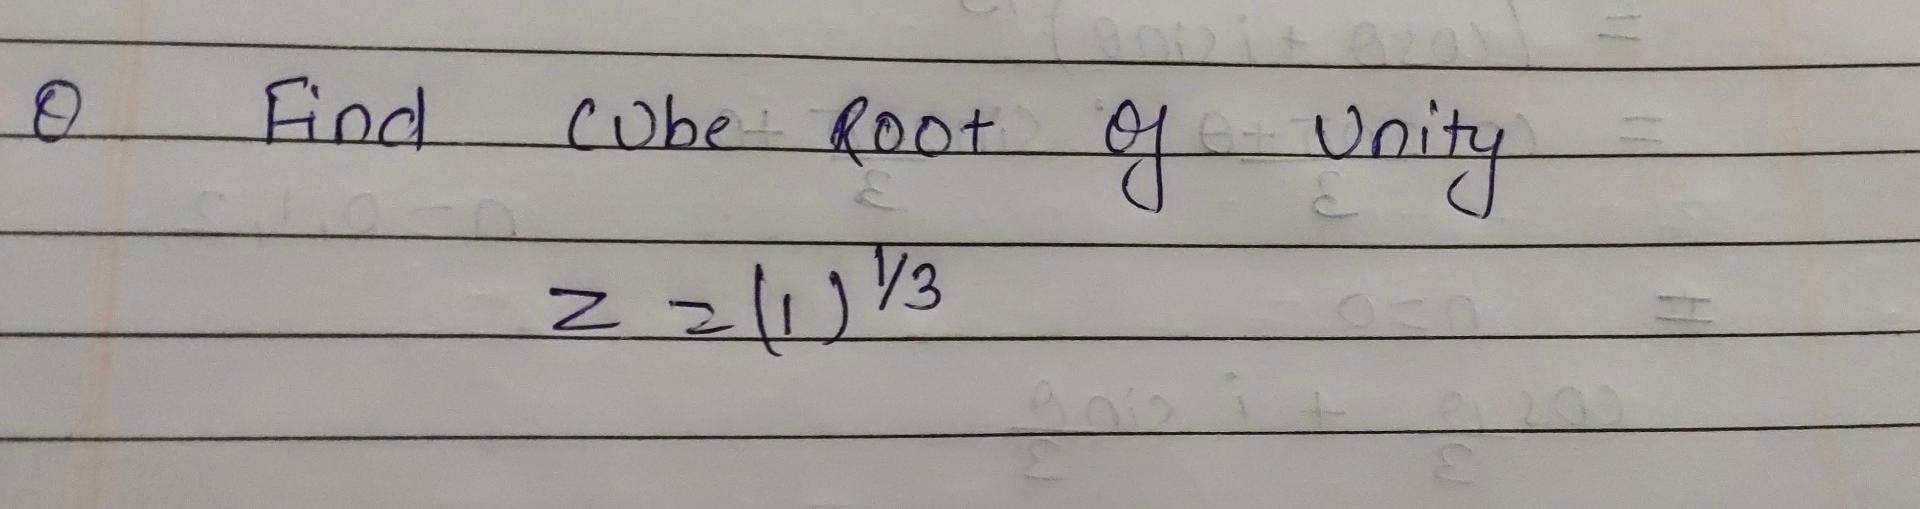 Q Find Cube Root of Unity
z = (1)^1/3